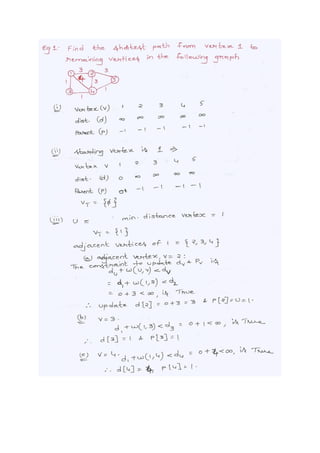 Eg 1: Find the shotest path from vertex 1 to
remaining vertices in the following graph
1 3 2 3
1 3 5
3 4 1
1
(i) Vertex (V) 1 2 3 4 5
dist. (d) ∞ ∞ ∞ ∞ ∞
Parent (P) -1 -1 -1 -1 -1
(ii) starting vertex is 1 ⇒
Vertex V 1 2 3 4 5
dist. (d) 0 ∞ ∞ ∞ ∞
Parent (P) -1 -1 -1 -1
V_T = {∅}
(iii) U = min. distance vertex = 1
V_T = {1}
adjacent vertices of 1 = {2, 3, 4}
(a) adjacent vertex, v = 2:
The constraint to update d_v & P_v is
d_u + w(u,v) < d_v
= d_1 + w(1,3) < d_2
= 0 + 3 < ∞, is True
∴ update d[2] = 0+3 = 3 & P[2] = U = 1.
(b) V = 3.
d_1 + w(1,3) < d_3 = 0 + 1 < ∞, is True
∴ d[3] = 1 & P[3] = 1
(c) V = 4.
d_1 + w(1,4) < d_4 = 0 + < ∞, is True
∴ d[4] = P[4] = 1.